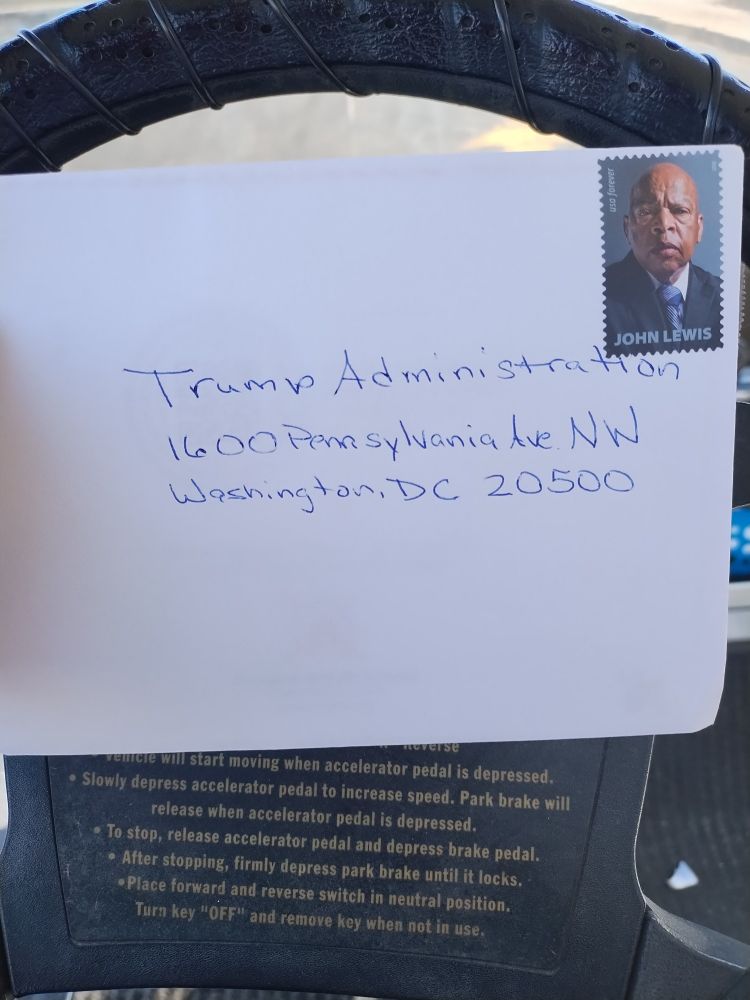 usa forever
JOHN LEWIS
Trump Administration
1600 Pennsylvania Ave. NW
Washington, DC 20500
Reverse
• Vehicle will start moving when accelerator pedal is depressed.
• Slowly depress accelerator pedal to increase speed. Park brake will
release when accelerator pedal is depressed.
• To stop, release accelerator pedal and depress brake pedal.
• After stopping, firmly depress park brake until it locks.
•Place forward and reverse switch in neutral position.
Turn key "OFF" and remove key when not in use.